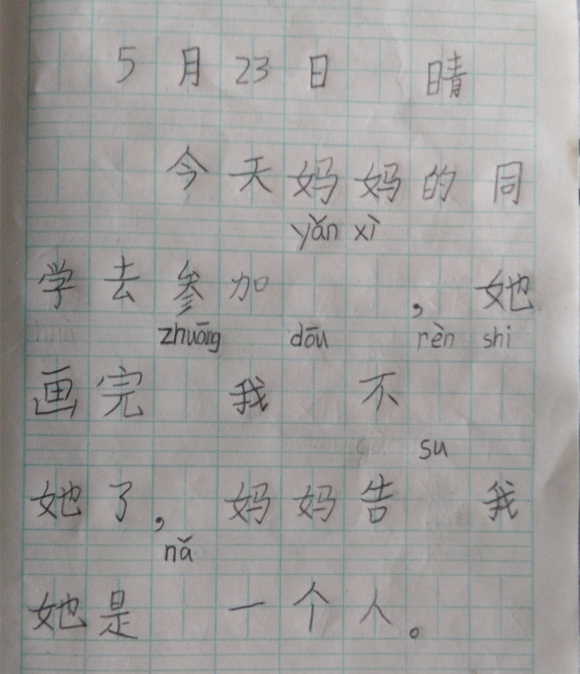 5月23日 晴
今天妈妈的同
yǎn xì
学去参加 ，她
zhuāng dōu rèn shi
画完 我 不
su
她了，妈妈告 我
nǎ
她是 一个人。